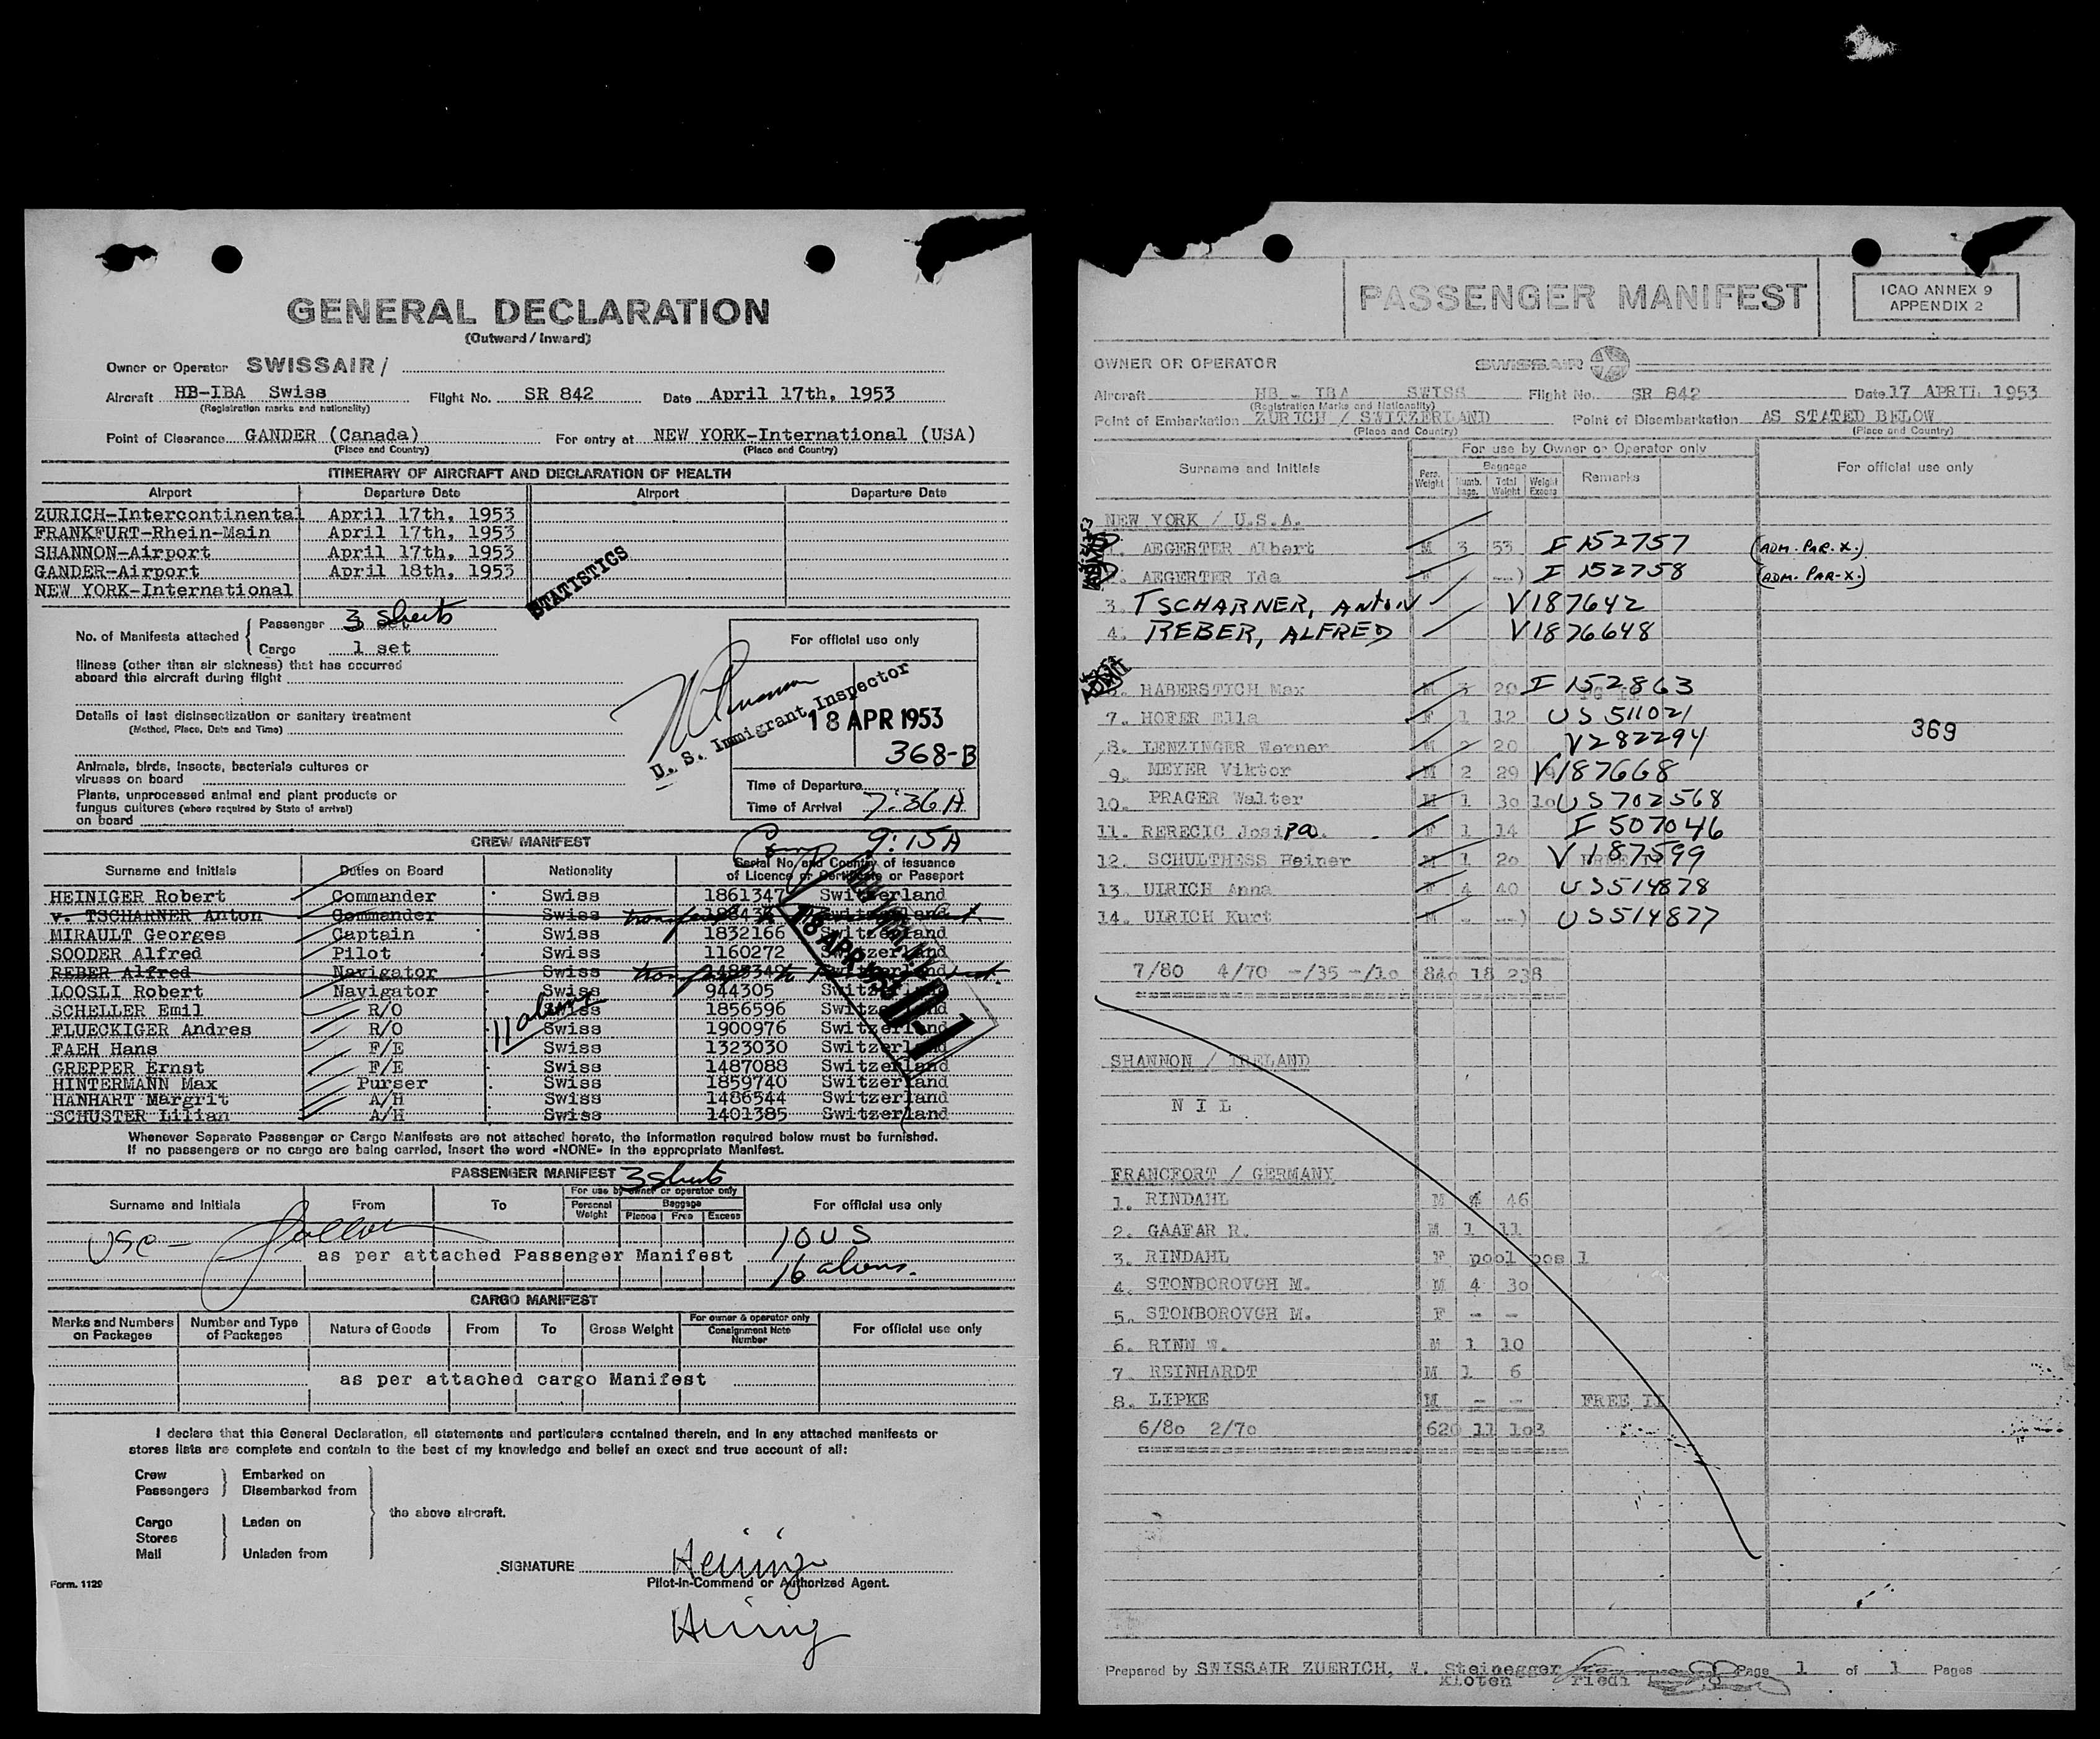 GENERAL DECLARATION
(Outward / Inward)
Owner or Operator SWISSAIR /
Aircraft HB-IBA Swiss Flight No. SR 842 Date April 17th, 1953
(Registration marks and nationality)
Point of Clearance GANDER (Canada) For entry at NEW YORK-International (USA)
(Place and Country) (Place and Country)
ITINERARY OF AIRCRAFT AND DECLARATION OF HEALTH
Airport Departure Date Airport Departure Date
ZURICH-Intercontinental April 17th, 1953
FRANKFURT-Rhein-Main April 17th, 1953
SHANNON-Airport April 17th, 1953
GANDER-Airport April 18th, 1953
NEW YORK-International
STATISTICS
No. of Manifests attached Passenger 3 sheets
Cargo 1 set
Illness (other than air sickness) that has occurred
aboard this aircraft during flight
Details of last disinsectization or sanitary treatment
(Method, Place, Date and Time)
Animals, birds, insects, bacterials cultures or
viruses on board
Plants, unprocessed animal and plant products or
fungus cultures (where required by State of arrival)
on board
For official use only
U. S. Immigrant Inspector
18 APR 1953
368-B
Time of Departure
Time of Arrival 7:36 A
9:15A
CREW MANIFEST
Surname and Initials Duties on Board Nationality Serial No. and Country of issuance
of Licence or Certificate or Passport
HEINIGER Robert Commander Swiss 1861347 Switzerland
v. TSCHARNER Anton Commander Swiss Switzerland
MIRAULT Georges Captain Swiss 1832166 Switzerland
SOODER Alfred Pilot Swiss 1160272 Switzerland
REBER Alfred Navigator Swiss Switzerland
LOOSLI Robert Navigator Swiss 944305 Switzerland
SCHELLER Emil R/O Swiss 1856596 Switzerland
FLUECKIGER Andres R/O Swiss 1900976 Switzerland
FAEH Hans F/E Swiss 1323030 Switzerland
GREPPER Ernst F/E Swiss 1487088 Switzerland
HINTERMANN Max Purser Swiss 1859740 Switzerland
HANHART Margrit A/H Swiss 1486544 Switzerland
SCHUSTER Lilian A/H Swiss 1401385 Switzerland
11 aliens
18 APR 1953
Whenever Separate Passenger or Cargo Manifests are not attached hereto, the information required below must be furnished.
If no passengers or no cargo are being carried, insert the word «NONE» in the appropriate Manifest.
PASSENGER MANIFEST 3 sheets
Surname and Initials From To For use by owner or operator only For official use only
Personal Weight Baggage
Pieces Free Excess
USC - 10 US
as per attached Passenger Manifest
16 aliens.
CARGO MANIFEST
Marks and Numbers on Packages Number and Type of Packages Nature of Goods From To Gross Weight For owner & operator only Consignment Note Number For official use only
as per attached cargo Manifest
I declare that this General Declaration, all statements and particulars contained therein, and in any attached manifests or
stores lists are complete and contain to the best of my knowledge and belief an exact and true account of all:
Crew Embarked on
Passengers Disembarked from
the above aircraft.
Cargo Laden on
Stores
Mail Unladen from
SIGNATURE
Pilot-in-Command or Authorized Agent.
Form. 1129
PASSENGER MANIFEST
ICAO ANNEX 9
APPENDIX 2
OWNER OR OPERATOR SWISSAIR
Aircraft HB - IBA SWISS Flight No. SR 842 Date 17 APRIL 1953
(Registration Marks and Nationality)
Point of Embarkation ZURICH / SWITZERLAND Point of Disembarkation AS STATED BELOW
(Place and Country) (Place and Country)
Surname and Initials For use by Owner or Operator only For official use only
Pers. Weight Baggage Remarks
Numb. bags. Total Weight Weight Excess
NEW YORK / U.S.A.
1. AEGERTER Albert M 3 53 I 152757 (ADM. PAR. X.)
2. AEGERTER Ida F I 152758 (ADM. PAR-X.)
3. TSCHARNER, ANTON V187642
4. REBER, ALFRED V1876648
HABERSTICH Max M 3 20 I 152863
7. HOFER Ella F 1 12 US 511021
369
8. LENZINGER Werner M 2 20 V282294
9. MEYER Viktor M 2 29 V187668
10. PRAGER Walter M 1 30 10 US 702568
11. RERECIC Josipa. F 1 14 I 507046
12. SCHULTHESS Heiner M 1 20 V 187599
13. ULRICH Anna F 4 40 US514878
14. ULRICH Kurt M - --) US514877
7/80 4/70 -/35 -/10 840 18 238
SHANNON / IRELAND
N I L
FRANCFORT / GERMANY
1. RINDAHL M 4 46
2. GAAFAR R. M 1 11
3. RINDAHL F pool pos 1
4. STONBOROVGH M. M 4 30
5. STONBOROVGH M. F - -
6. RINN W. M 1 10
7. REINHARDT M 1 6
8. LIPKE M - - FREE II
6/80 2/70 620 11 103
Prepared by SWISSAIR ZUERICH, W. Steinegger Page 1 of 1 Pages
Kloten riedi